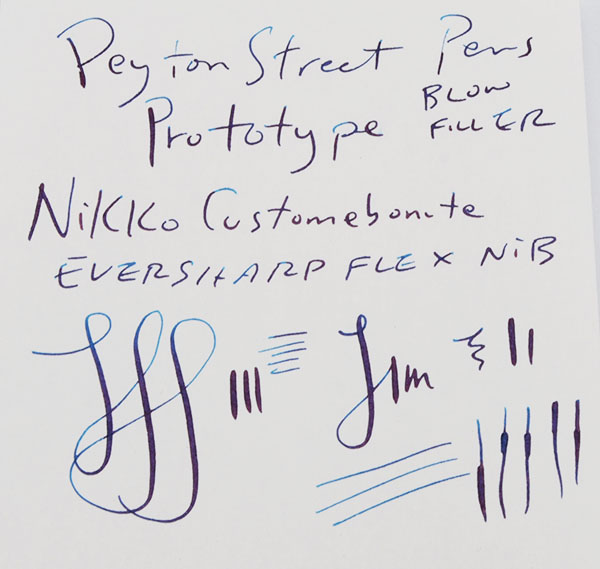 Peyton Street Pens
Prototype BLOW
FILLER
Nikko Customebonite
EVERSHARP FLEX NiB
Jim